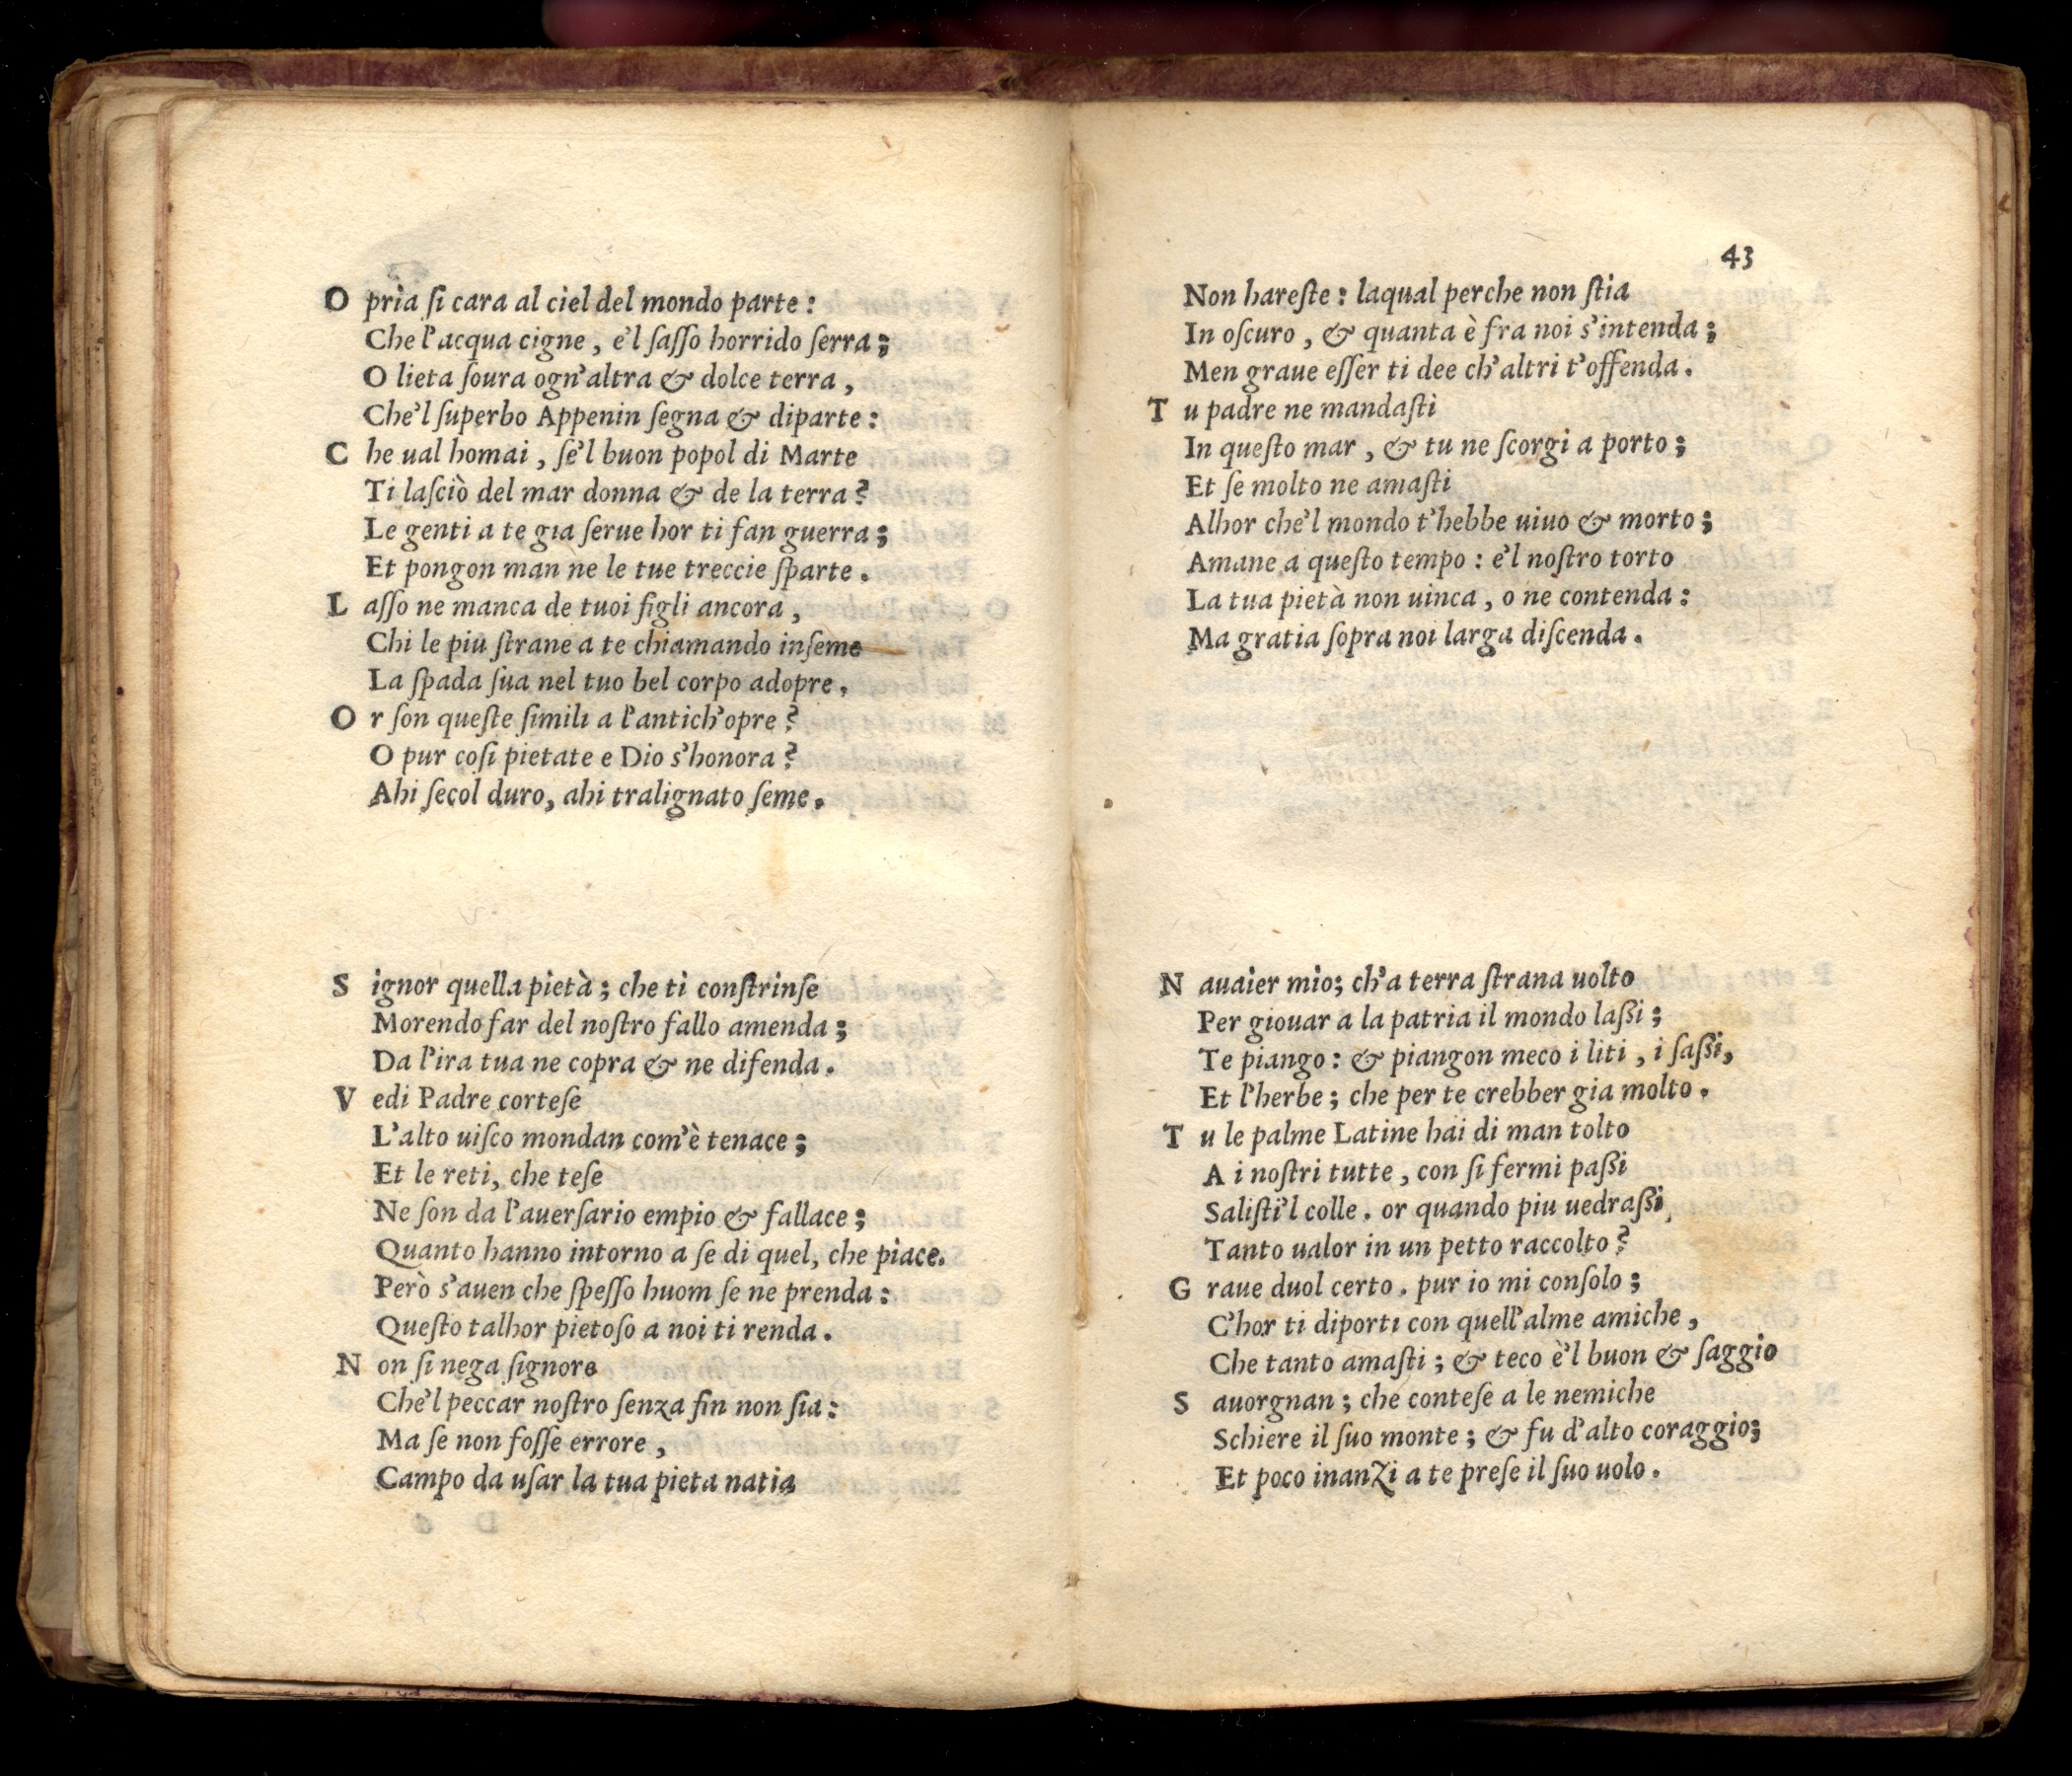 O pria si cara al ciel del mondo parte:
Che l'acqua cigne, e'l sasso horrido serra;
O lieta soura ogn'altra & dolce terra,
Che'l superbo Appenin segna & diparte:
C he ual homai, se'l buon popol di Marte
Ti lasciò del mar donna & de la terra?
Le genti a te gia serue hor ti fan guerra;
Et pongon man ne le tue treccie sparte.
L asso ne manca de tuoi figli ancora,
Chi le piu strane a te chiamando inseme
La spada sua nel tuo bel corpo adopre.
O r son queste simili a l'antich'opre?
O pur cosi pietate e Dio s'honora?
Ahi secol duro, ahi tralignato seme.
S ignor quella pietà; che ti constrinse
Morendo far del nostro fallo amenda;
Da l'ira tua ne copra & ne difenda.
V edi Padre cortese
L'alto uisco mondan com'è tenace;
Et le reti, che tese
Ne son da l'auersario empio & fallace;
Quanto hanno intorno a se di quel, che piace.
Però s'auen che spesso huom se ne prenda:
Questo talhor pietoso a noi ti renda.
N on si nega signore
Che'l peccar nostro senza fin non sia:
Ma se non fosse errore,
Campo da usar la tua pieta natia
43
Non hareste: laqual perche non stia
In oscuro, & quanta è fra noi s'intenda;
Men graue esser ti dee ch'altri t'offenda.
T u padre ne mandasti
In questo mar, & tu ne scorgi a porto;
Et se molto ne amasti
Alhor che'l mondo t'hebbe uiuo & morto;
Amane a questo tempo: e'l nostro torto
La tua pietà non uinca, o ne contenda:
Ma gratia sopra noi larga discenda.
N auaier mio; ch'a terra strana uolto
Per giouar a la patria il mondo laßi;
Te piango: & piangon meco i liti, i saßi,
Et l'herbe; che per te crebber gia molto.
T u le palme Latine hai di man tolto
A i nostri tutte, con si fermi paßi
Salisti'l colle. or quando piu uedraßi,
Tanto ualor in un petto raccolto?
G raue duol certo. pur io mi consolo;
C'hor ti diporti con quell'alme amiche,
Che tanto amasti; & teco è'l buon & saggio
S auorgnan; che contese a le nemiche
Schiere il suo monte; & fu d'alto coraggio;
Et poco inanzi a te prese il suo uolo.